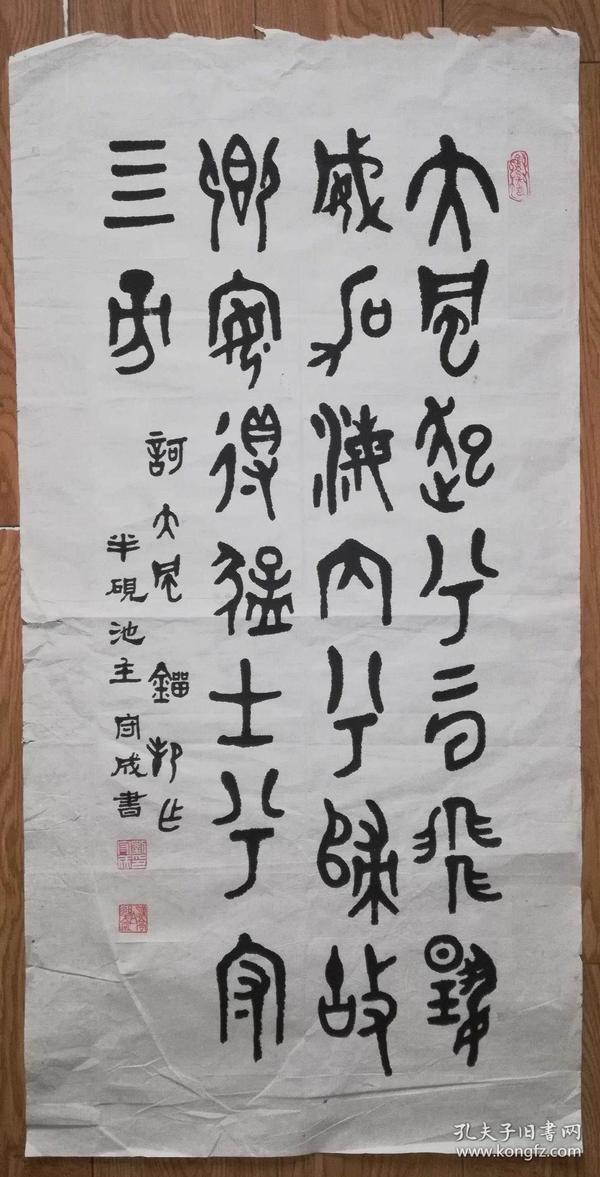 大風起兮雲飛揚
威加海内兮歸故
鄉安得猛士兮守
四方
訶大風 鎦邦作
半硯池主 守成書
孔夫子旧書网
www.kongfz.com